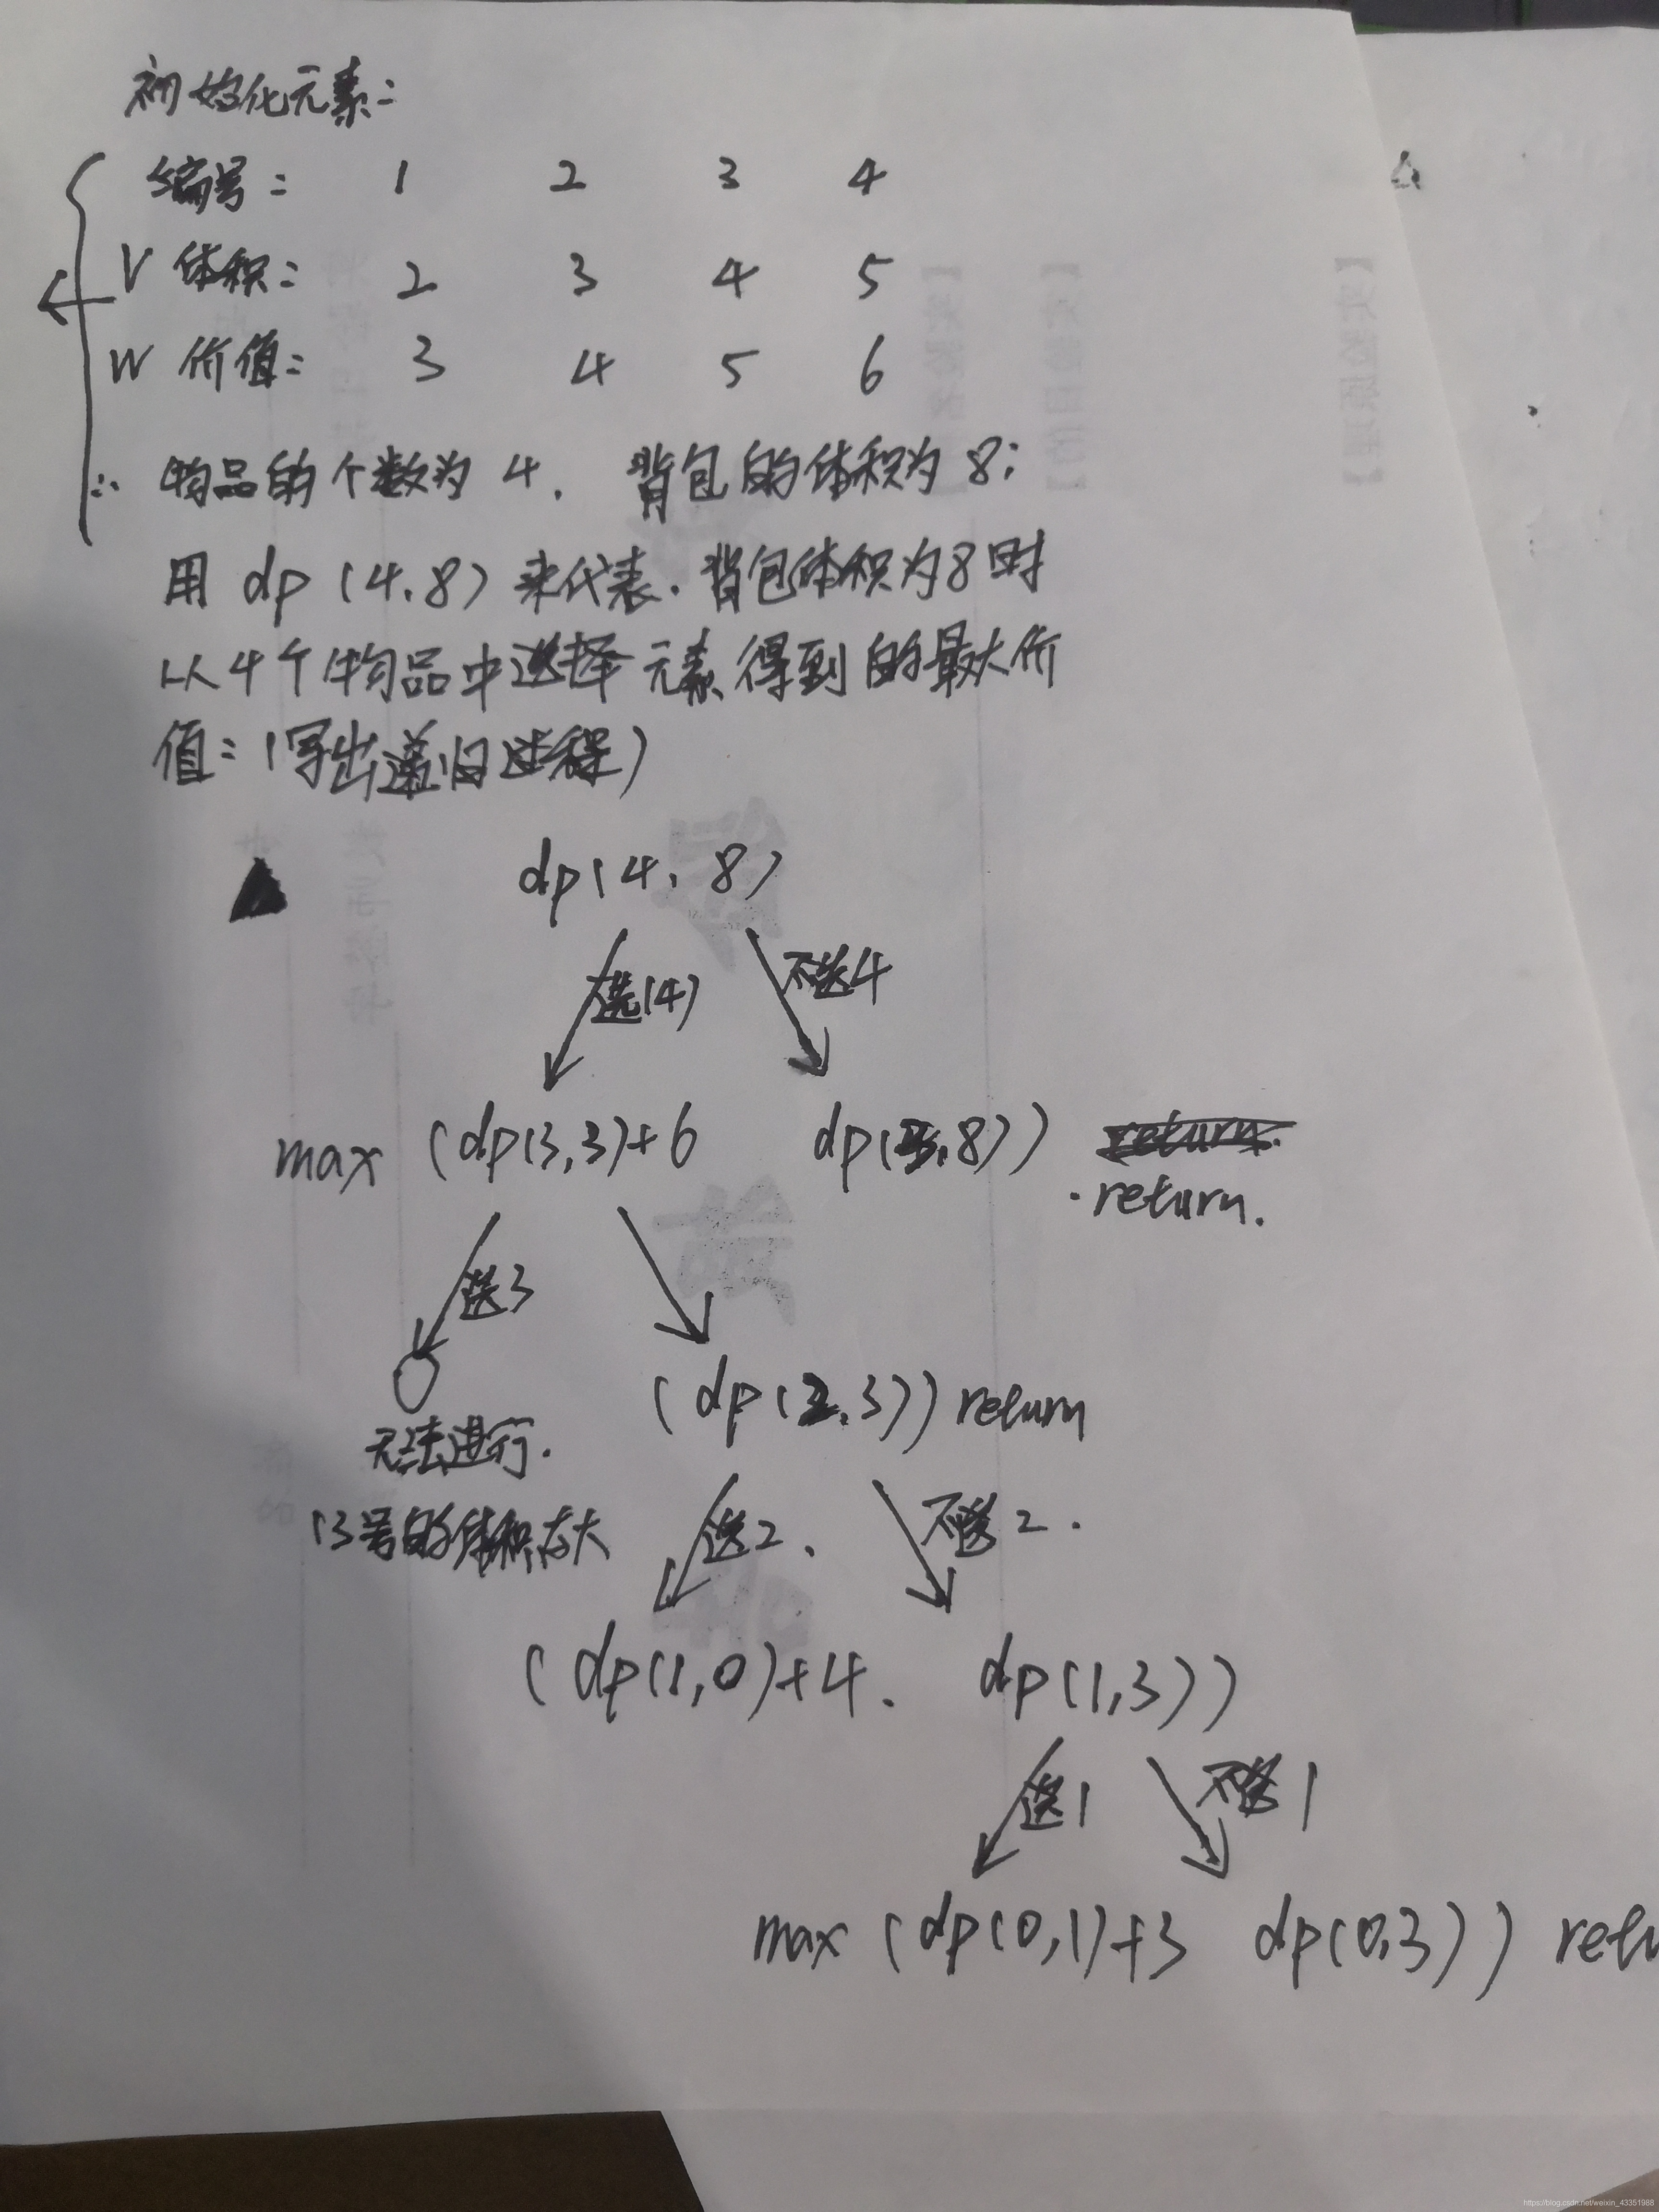 初始化元素:
编号: 1 2 3 4
V 体积: 2 3 4 5
W 价值: 3 4 5 6
∴ 物品的个数为 4. 背包的体积为 8;
用 dp (4.8) 来代表. 背包体积为8时
从4个物品中选择元素得到的最大价
值: (写出递归过程)
dp(4, 8)
选(4) 不选4
max (dp(3,3)+6 dp(3,8))
return.
选3
(dp(2,3)) return
无法进行.
(3号的体积太大
选2. 不选2.
(dp(1,0)+4. dp(1,3))
选1 不选1
max (dp(0,1)+3 dp(0,3)) retu
【实验名
【实验目的】
【实验原理】
https://blog.csdn.net/weixin_43351988